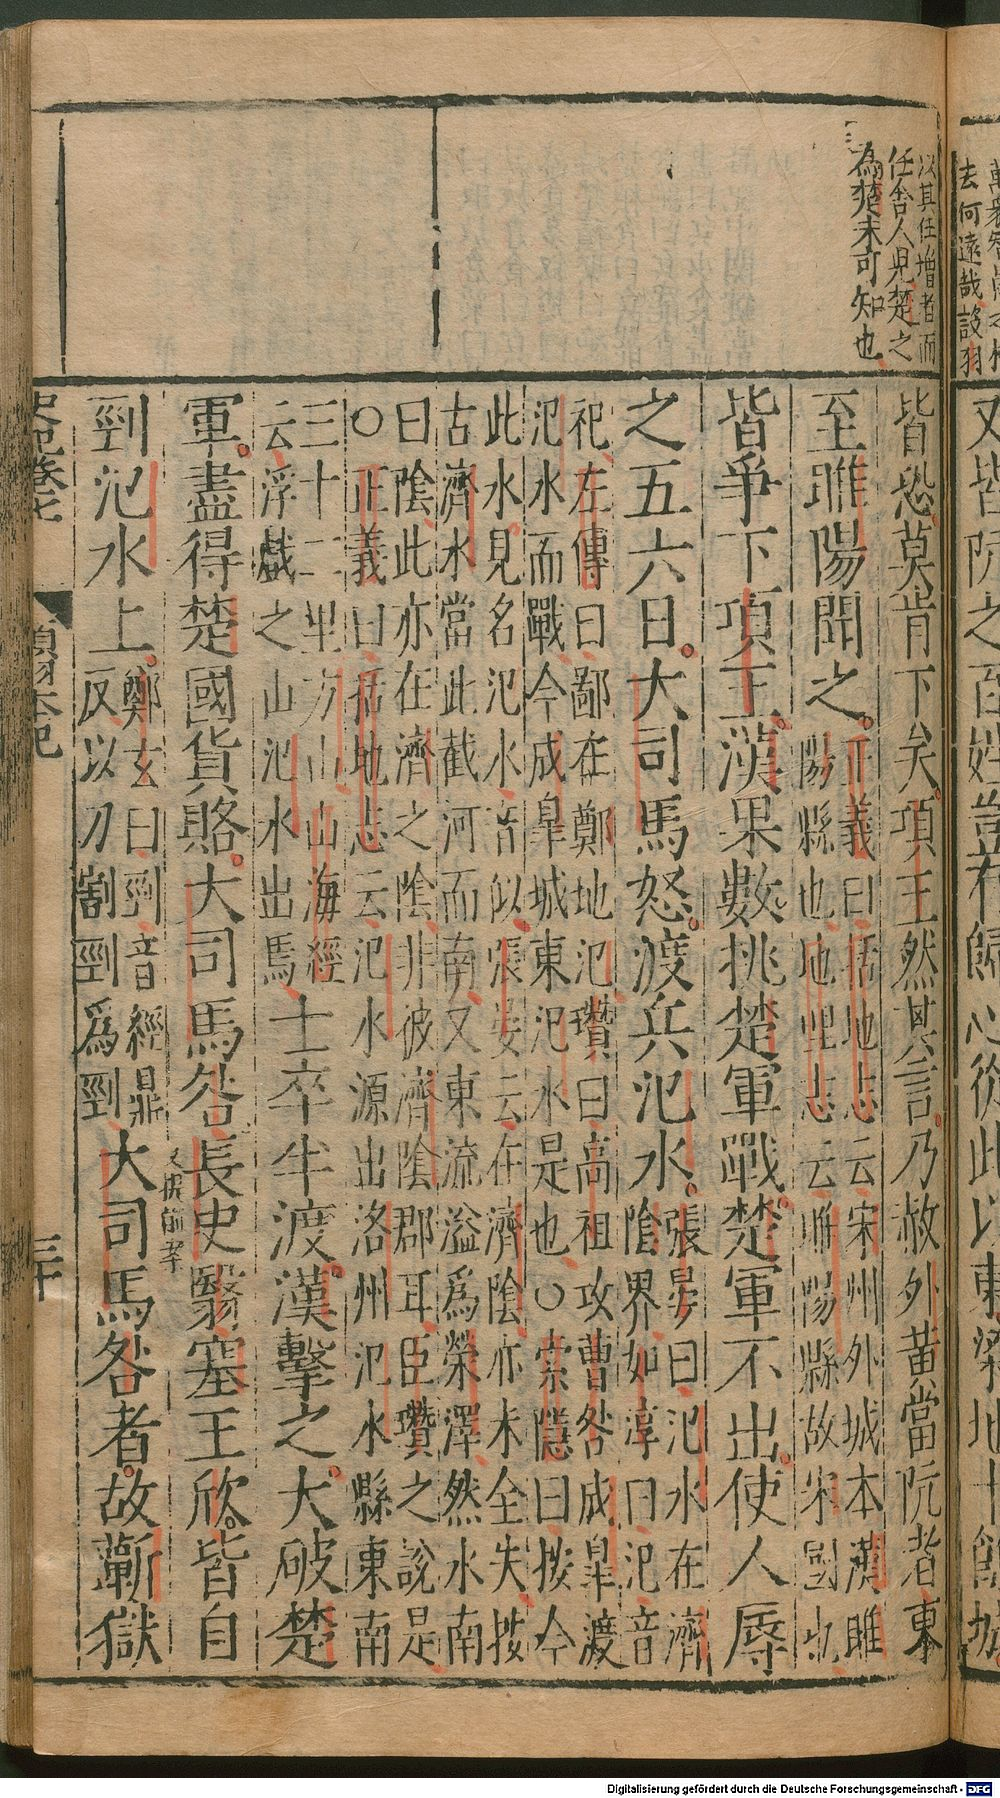 以其任增者而
任舍人兒楚之
為楚未可知也
去何遠哉設羽
又皆阬之百姓豈有歸心從此以東梁地十餘城
皆恐莫肯下矣項王然其言乃赦外黃當阬者東
至睢陽聞之正義曰括地志云宋州外城本漢睢
陽縣也地理志云睢陽縣故宋國也
皆爭下項王漢果數挑楚軍戰楚軍不出使人辱
之五六日大司馬怒渡兵汜水張晏曰汜水在濟
陰界如淳曰汜音
祀左傳曰鄙在鄭地汜瓚曰高祖攻曹咎成皐渡
汜水而戰今成皐城東汜水是也○索隱曰按今
此水見名汜水音似張晏云在濟陰亦未全失按
古濟水當此截河而南又東流溢爲滎澤然水南
曰陰此亦在濟之陰非彼濟陰郡耳臣瓚之說是
○正義曰括地志云汜水源出洛州汜水縣東南
三十二里方山山海經
云浮戲之山汜水出焉士卒半渡漢擊之大破楚
軍盡得楚國貨賂大司馬咎長史翳塞王欣皆自
剄汜水上鄭玄曰剄音經鼎
反以刀割剄爲剄大司馬咎者故蘄獄
史記卷七
項羽本紀
三十
Digitalisierung gefördert durch die Deutsche Forschungsgemeinschaft - DFG